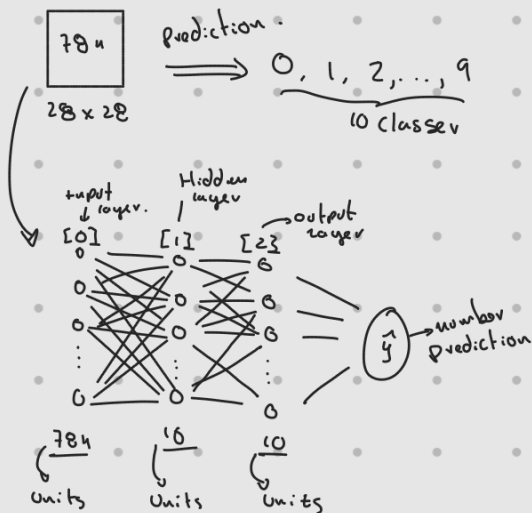 784
prediction.
0, 1, 2, ..., 9
28 x 28
10 Classes
Input layer.
Hidden layer
output layer
[0] [1] [2]
ŷ
number prediction
784 10 10
units units units